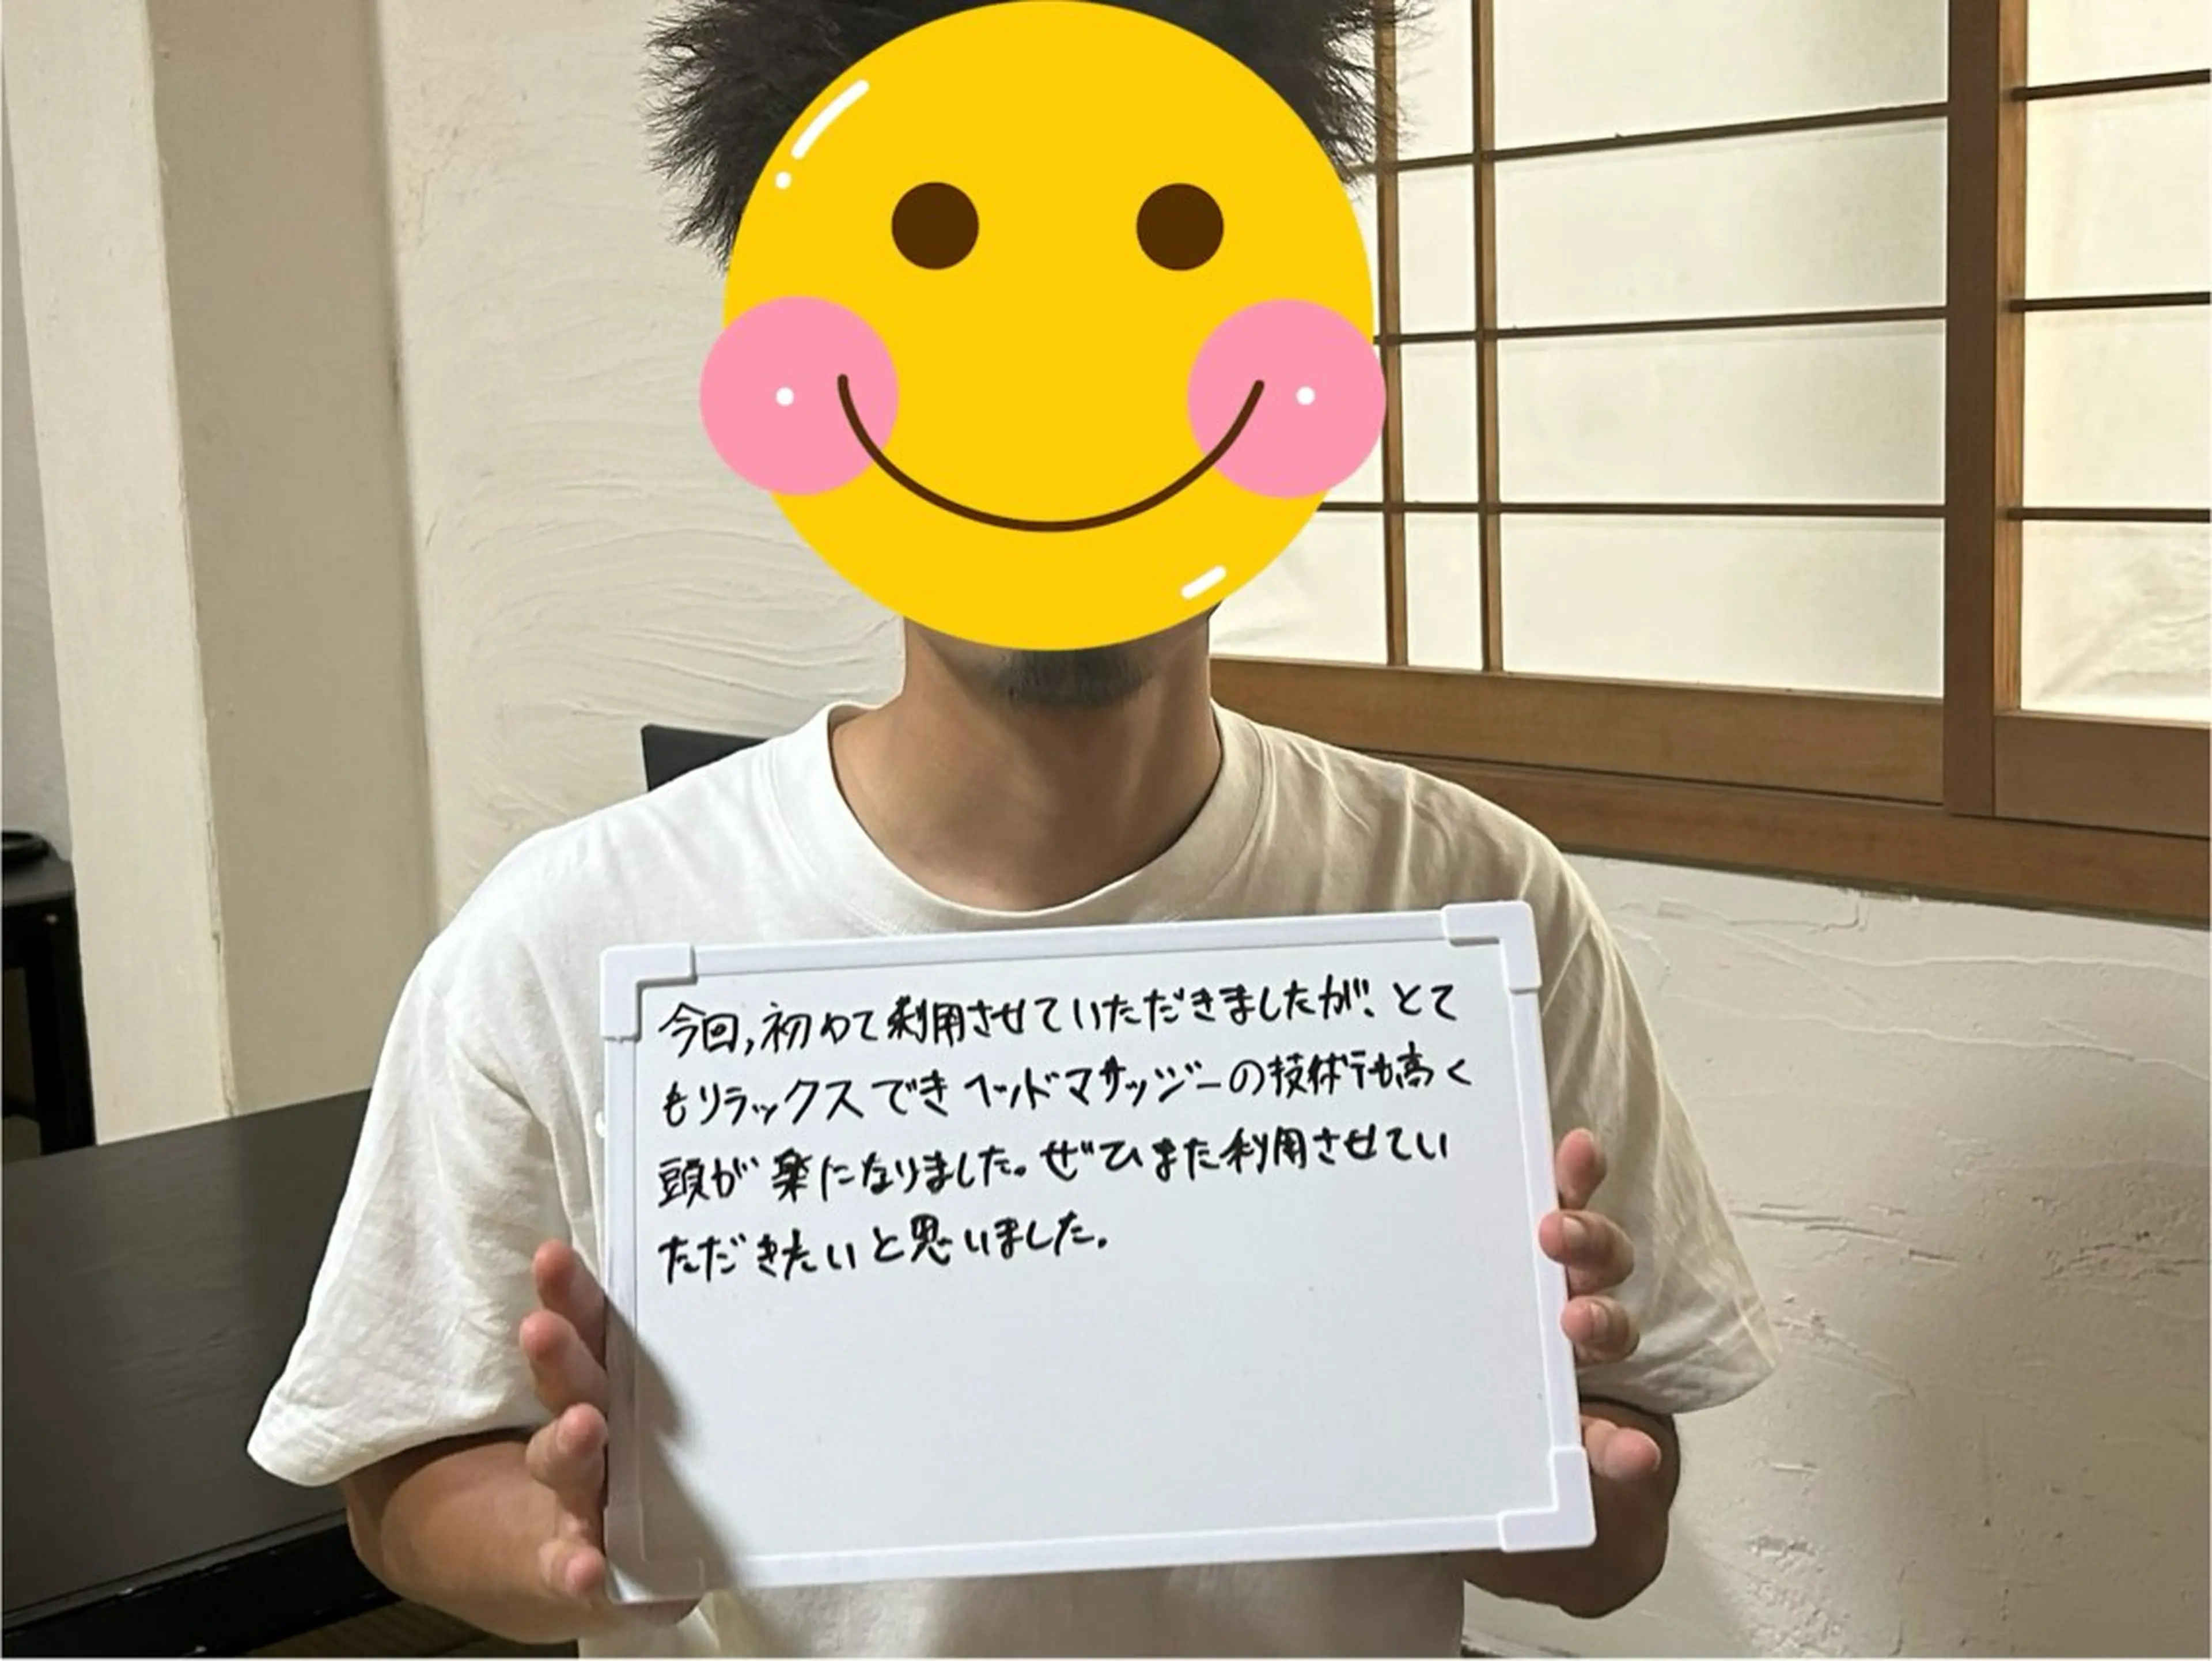 今回,初めて利用させていただきましたが、とて
もリラックスできヘッドマサッジーの技術も高く
頭が楽になりました。ぜひまた利用させてい
ただきたいと思いました。